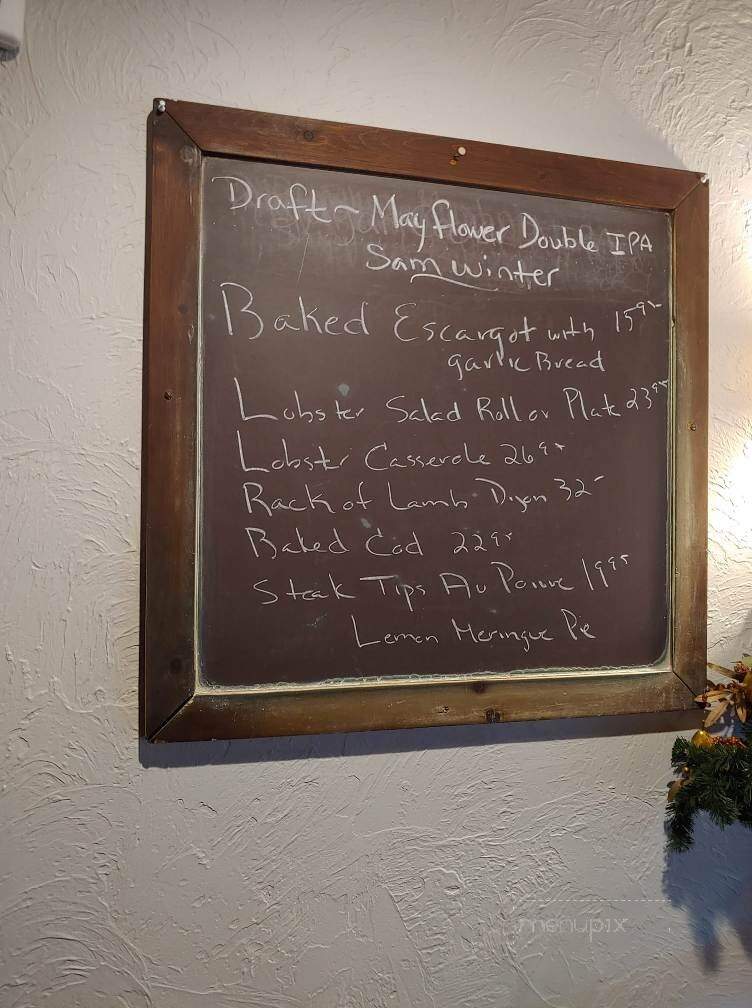 Draft ~ Mayflower Double IPA
Sam Winter
Baked Escargot with 15 95
garlic Bread
Lobster Salad Roll or Plate 23 95
Lobster Casserole 26 95
Rack of Lamb Dijon 32-
Baked Cod 22 95
Steak Tips Au Poivre 19 95
Lemon Meringue Pie
menupix